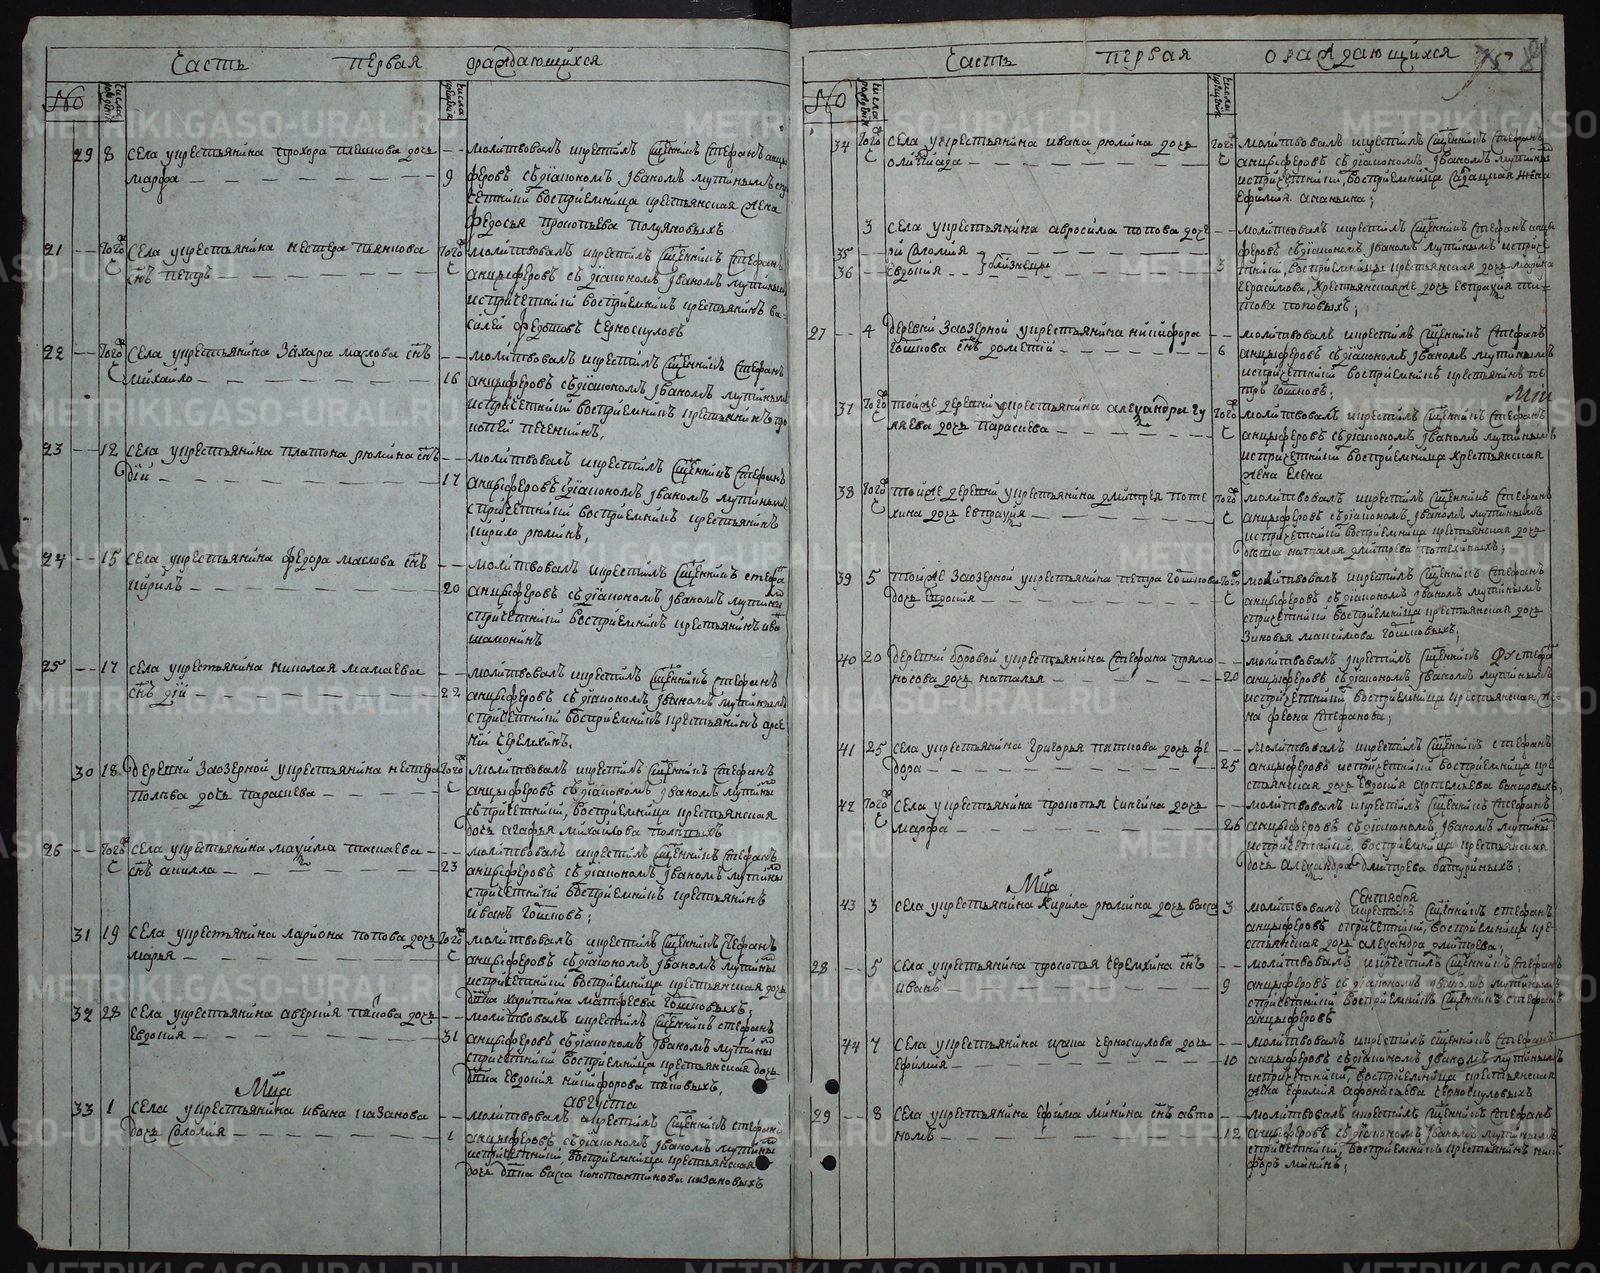 Часть первая ораждающихся
№ числа рождения числа крещения
29 8 села укрестьянина прохора пешкова дочь
марфа
молитвовалъ икрестилъ сщенникъ стефанъ анцы
9 феровъ съдиакономъ Iваномъ мутинымъ
восприемница крестьянская жена
федосья прокопьева
21 того села укрестьянина нестера пьянкова
ж снъ петръ
того молитвовалъ икрестилъ сщенникъ стефанъ
ж анцыферовъ съдиакономъ Iваномъ мутинымъ
испричетники восприемникъ крестьянинъ ва
силей федотовъ черноскуловъ
22 того села укрестьянина Захара маслова снъ
ж михайло
молитвовалъ икрестилъ сщенникъ стефанъ
16 анцыферовъ съдиакономъ Iваномъ мутинымъ
испричетники восприемникъ крестьянинъ про
копей печенкинъ
23 12 села укрестьянина платона рюмина снъ
дий
молитвовалъ икрестилъ сщенникъ стефанъ
17 анцыферовъ съдиакономъ Iваномъ мутинымъ
спричетники восприемникъ крестьянинъ
кирило рюминъ,
24 15 села укрестьянина федора маслова снъ
кирилъ
молитвовалъ икрестилъ сщенникъ стефа
20 анцыферовъ съдиакономъ Iваномъ мутины
спричетники восприемникъ крестьянинъ ива
шамонинъ
25 17 села укрестьянина николая мамаева
снъ дий
молитвовалъ икрестилъ сщенникъ стефанъ
22 анцыферовъ съдиакономъ Iваномъ мутинымъ
спричетники восприемникъ крестьянинъ арсе
ний черемхинъ.
30 18 деревни Заозерной укрестьянина нестера
попова дочь парасиева
того молитвовалъ икрестилъ сщенникъ стефанъ
ж анцыферовъ съдиакономъ Iваномъ мутины
съпричетники, восприемница крестьянская
дочь агафья михайлова
26 того села укрестьянина маѯима
ж снъ акилла
молитвовалъ икрестилъ сщенникъ стефанъ
23 анцыферовъ съдиакономъ Iваномъ мутины
спричетники восприемникъ крестьянинъ
иванъ гошковъ;
31 19 села укрестьянина лариона попова дочь
марья
того молитвовалъ икрестилъ сщенникъ стефанъ
ж анцыферовъ съдиакономъ Iваномъ мутины
испричетники восприемница крестьянская дочь
харитина матфеева гошковыхъ;
32 28 села укрестьянина аверкия дочь
евдокия
молитвовалъ икрестилъ сщенникъ стефанъ
31 анцыферовъ съдиакономъ Iваномъ мутины
спричетники восприемница крестьянская дочь
евдокия никифорова
Мца августа
33 1 села укрестьянина ивана казакова
дочь соломия
молитвовалъ икрестилъ сщенникъ стефанъ
1 анцыферовъ съдиакономъ Iваномъ мутины
испричетники восприемница крестьянская
дочь васса константинова казаковыхъ
Часть первая ораждающихся
№ числа рождения числа крещения
34 того села укрестьянина ивана рюмина дочь
ж олимпиада
того молитвовалъ икрестилъ сщенникъ стефанъ
ж анцыферовъ съдиакономъ Iваномъ мутины
испричетники, восприемница жена
ефимия ананьина;
3 села укрестьянина авросима попова доч
35 ри соломия
36 евдокия близнецы
молитвовалъ икрестилъ сщенникъ стефанъ анцы
феровъ съдиакономъ Iваномъ мутинымъ испричет
3 ники, восприемницы крестьянская дочь марина
герасимова, крестьянская же дочь евпраѯия ти
това поповыхъ;
27 4 деревни Заозерной укрестьянина никифора
гошкова снъ дометий
молитвовалъ икрестилъ сщенникъ стефанъ
6 анцыферовъ съдиакономъ Iваномъ мутинымъ
испричетники восприемникъ крестьянинъ пе
тръ гошковъ;
37 того тойже деревни укрестьянина алеѯандра гу
ляева дочь парасиева
того молитвовалъ икрестилъ сщенникъ стефанъ
ж анцыферовъ съдиакономъ Iваномъ мутинымъ
испричетники восприемница крестьянская
жена елена
38 того тойже деревни укрестьянина димитрея поте
ж хина дочь евпраѯия
того молитвовалъ икрестилъ сщенникъ стефанъ
ж анцыферовъ съдиакономъ Iваномъ мутинымъ
испричетники восприемница крестьянская дочь
наталья дмитрева потехиныхъ;
39 5 тойже Заозерной укрестьянина петра гошкова
дочь евдокия
того молитвовалъ икрестилъ сщенникъ стефанъ
ж анцыферовъ съдиакономъ Iваномъ мутинымъ
спричетники восприемница крестьянская дочь
Зиновья максимова гошковыхъ;
40 20 деревни боровой укрестьянина стефана прямо
носова дочь наталья
молитвовалъ икрестилъ сщенникъ стефа
20 анцыферовъ съдиакономъ Iваномъ мутинымъ
испричетники восприемница крестьянская же
на феона стефанова;
41 25 села укрестьянина григорья пяткова дочь фе
дора
молитвовалъ икрестилъ сщенникъ стефанъ
25 анцыферовъ испричетники восприемница кре
стьянская дочь евдокия артемьева
42 того села укрестьянина прокопья дочь
ж марфа
молитвовалъ икрестилъ сщенникъ стефанъ
26 анцыферовъ съдиакономъ Iваномъ мутины
испричетники, восприемница крестьянская
дочь алеѯандра дмитрева батуриныхъ;
Мца Сентября
43 3 села укрестьянина кирила рюмина дочь васса
3 молитвовалъ икрестилъ сщенникъ стефанъ
анцыферовъ спричетники, восприемница кре
стьянская дочь алеѯандра дмитрева;
28 5 села укрестьянина прокопья черемхина снъ
иванъ
молитвовалъ икрестилъ сщенникъ стефанъ
9 анцыферовъ съдиакономъ Iваномъ мутинымъ
спричетники восприемникъ сщенникъ стефанъ
анцыферовъ
44 7 села укрестьянина черноскулова дочь
ефимия
молитвовалъ икрестилъ сщенникъ стефанъ
10 анцыферовъ съдиакономъ Iваномъ мутинымъ
испричетники, восприемница крестьянская
жена ефимия афонасьева черноскуловыхъ
29 8 села укрестьянина ефима минина снъ авто
номъ
молитвовалъ икрестилъ сщенникъ стефанъ
12 анцыферовъ съдиакономъ Iваномъ мутинымъ
спричетники, восприемникъ крестьянинъ ники
форъ мининъ;
METRIKI.GASO-URAL.RU